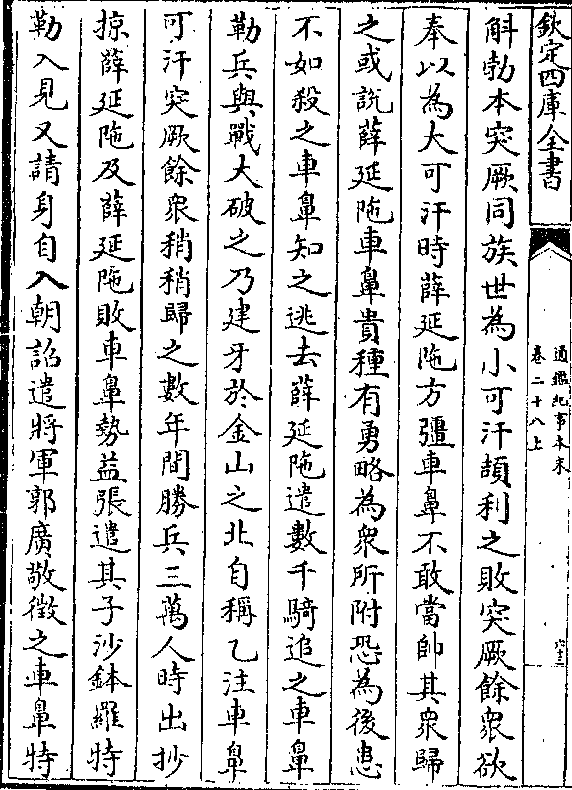 欽定四庫全書
通鑑紀事本末
卷二十八上
斛勃本突厥同族世為小可汗頡利之敗突厥餘衆欲
奉以為大可汗時薛延陁方彊車鼻不敢當帥其衆歸
之或說薛延陁車鼻貴種有勇略為衆所附恐為後患
不如殺之車鼻知之逃去薛延陁遣數千騎追之車鼻
勒兵與戰大破之乃建牙於金山之北自稱乙注車鼻
可汗突厥餘衆稍稍歸之數年間勝兵三萬人時出抄
掠薛延陁及薛延陁敗車鼻勢益張遣其子沙鉢羅特
勒入見又請身自入朝詔遣將軍郭廣敬徵之車鼻特